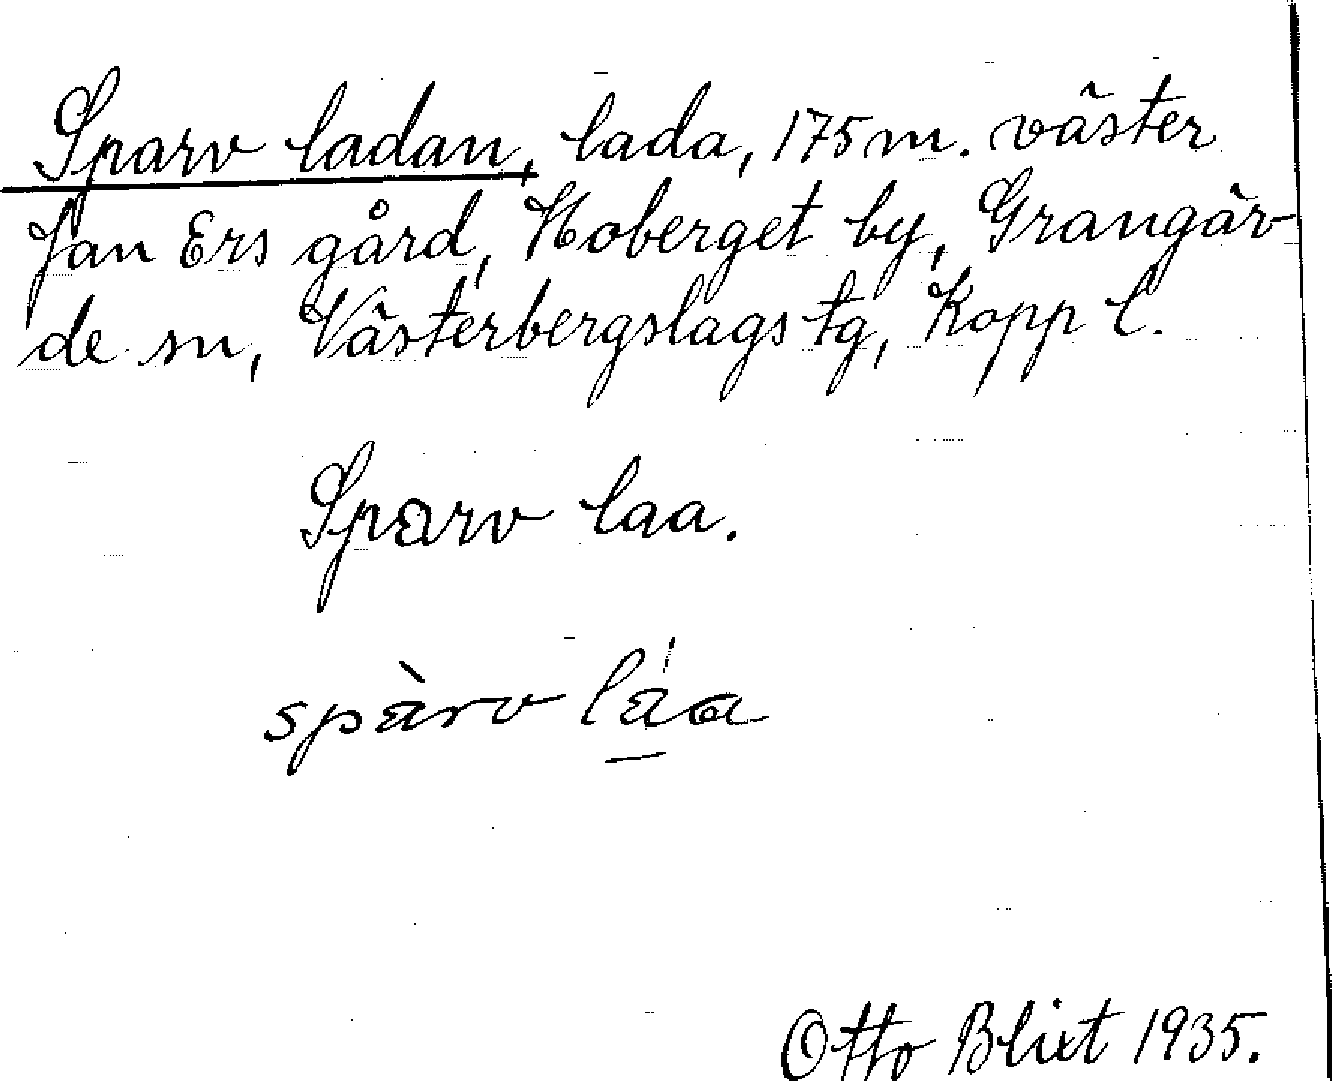 Sparv ladan, lada, 175 m. väster
Jan Ers gård, Hoberget by, Grangär-
de sn, Västerbergslags tg, Kopp l.
Sparv laa.
spàrv láa
Otto Blixt 1935.